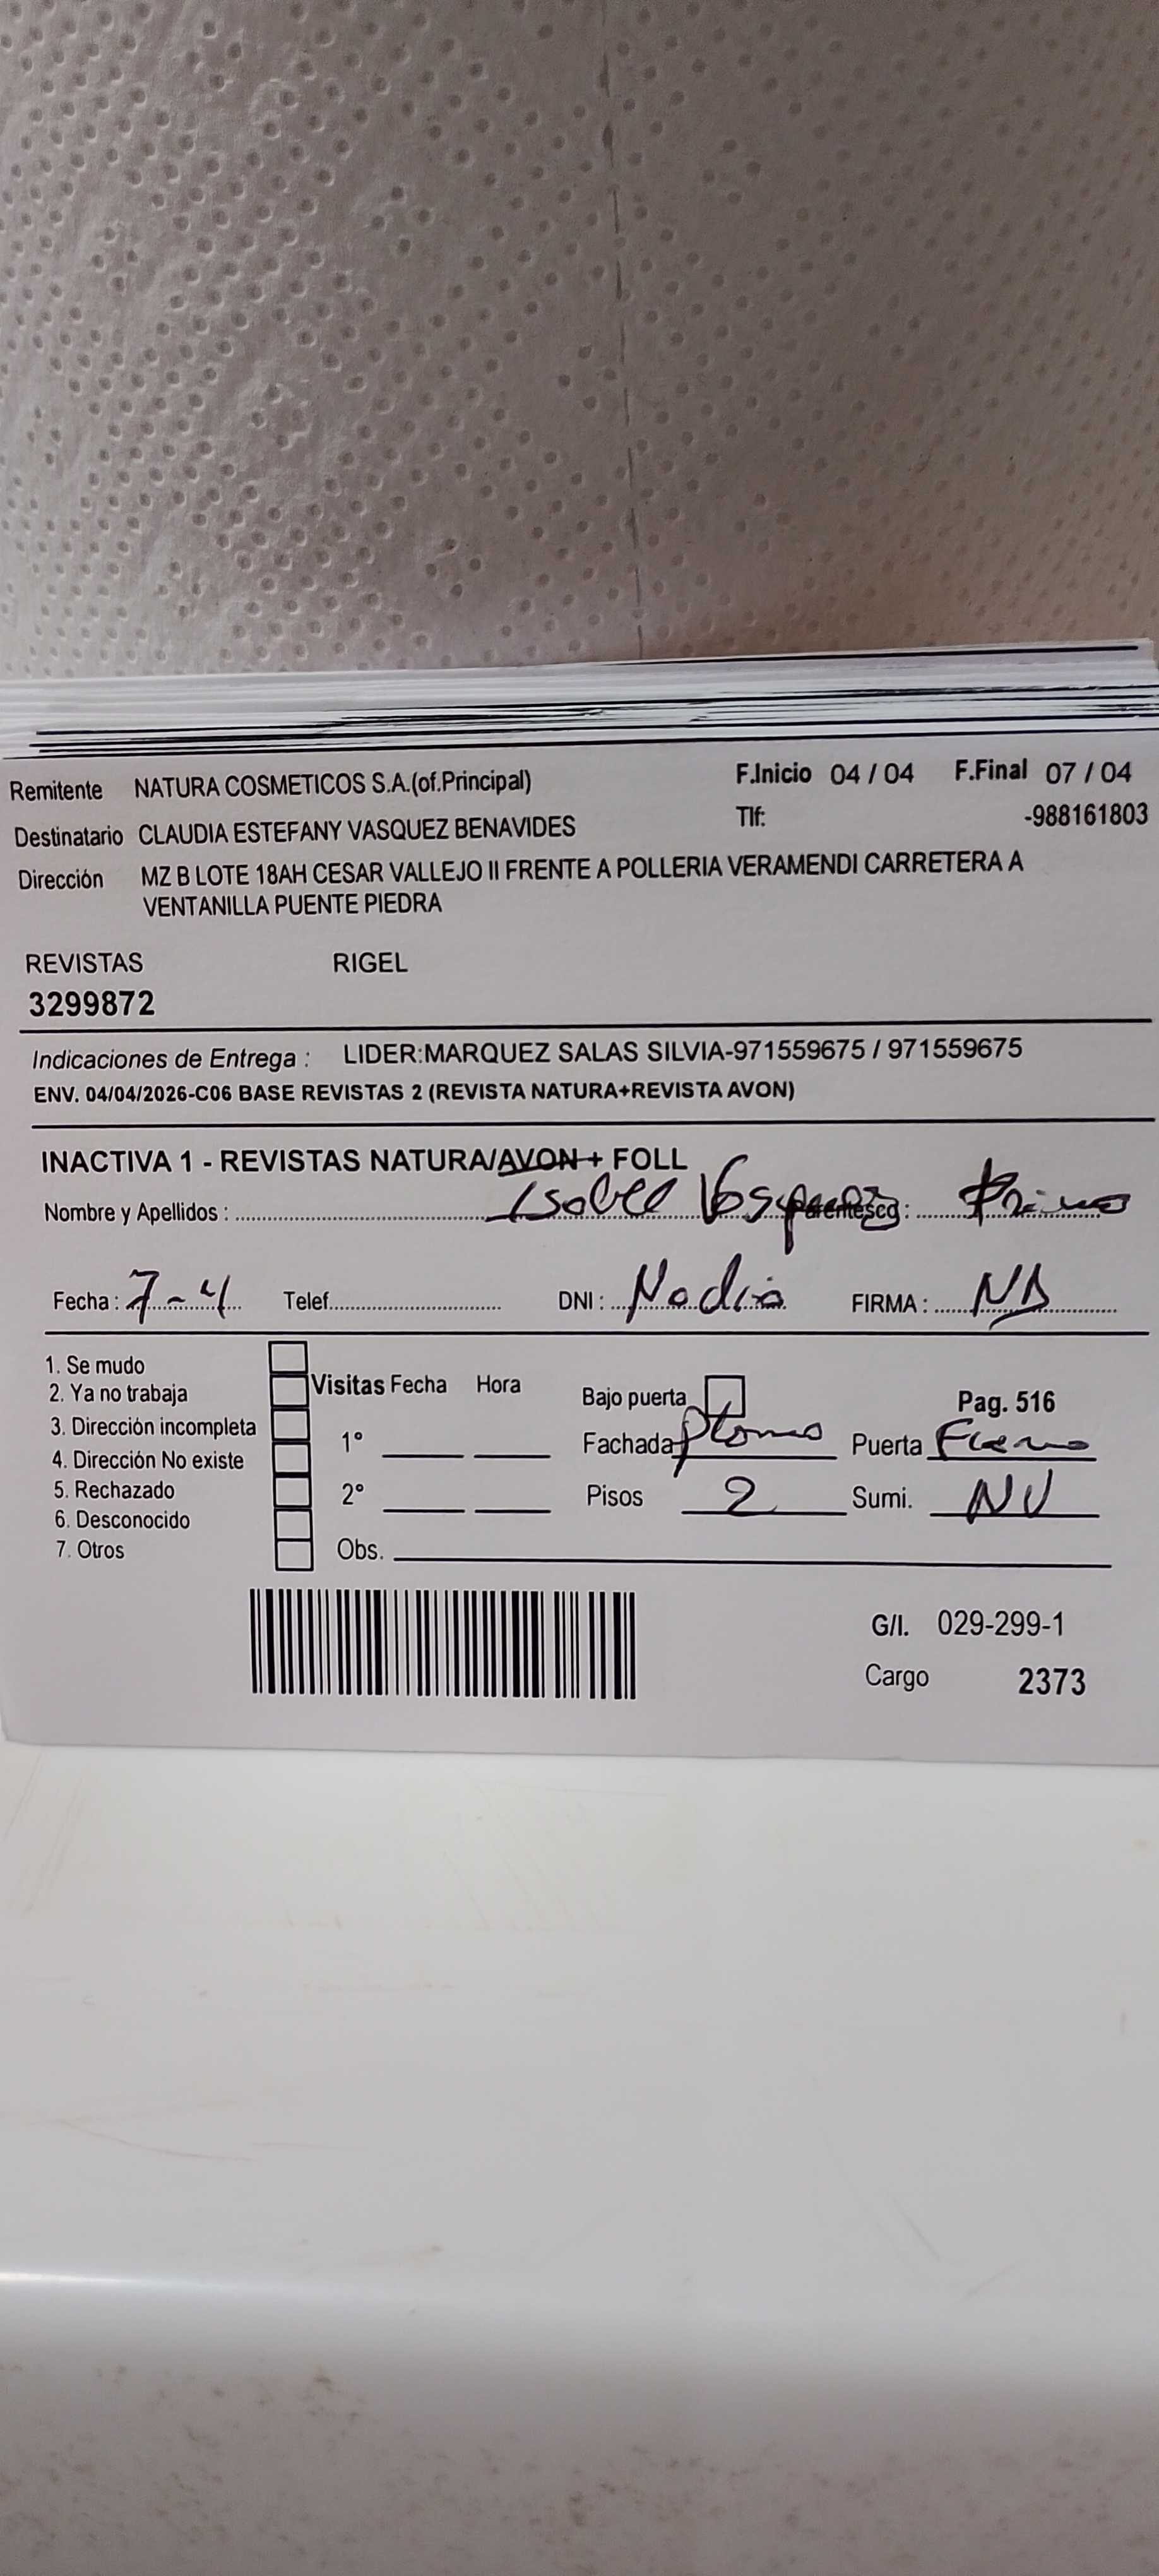 Remitente NATURA COSMETICOS S.A.(of.Principal) F.Inicio 04 / 04 F.Final 07 / 04
Destinatario CLAUDIA ESTEFANY VASQUEZ BENAVIDES Tlf: -988161803
Dirección MZ B LOTE 18AH CESAR VALLEJO II FRENTE A POLLERIA VERAMENDI CARRETERA A
VENTANILLA PUENTE PIEDRA
REVISTAS RIGEL
3299872
Indicaciones de Entrega : LIDER:MARQUEZ SALAS SILVIA-971559675 / 971559675
ENV. 04/04/2026-C06 BASE REVISTAS 2 (REVISTA NATURA+REVISTA AVON)
INACTIVA 1 - REVISTAS NATURA/AVON + FOLL
Nombre y Apellidos : Isabel Vasquez Parentesco : Primo
Fecha : 7-4 Telef. DNI : No dio FIRMA : ND
1. Se mudo
2. Ya no trabaja
3. Dirección incompleta
4. Dirección No existe
5. Rechazado
6. Desconocido
7. Otros
Visitas Fecha Hora
1°
2°
Obs.
Bajo puerta Pag. 516
Fachada Plomo Puerta Fierro
Pisos 2 Sumi. NV
G/I. 029-299-1
Cargo 2373